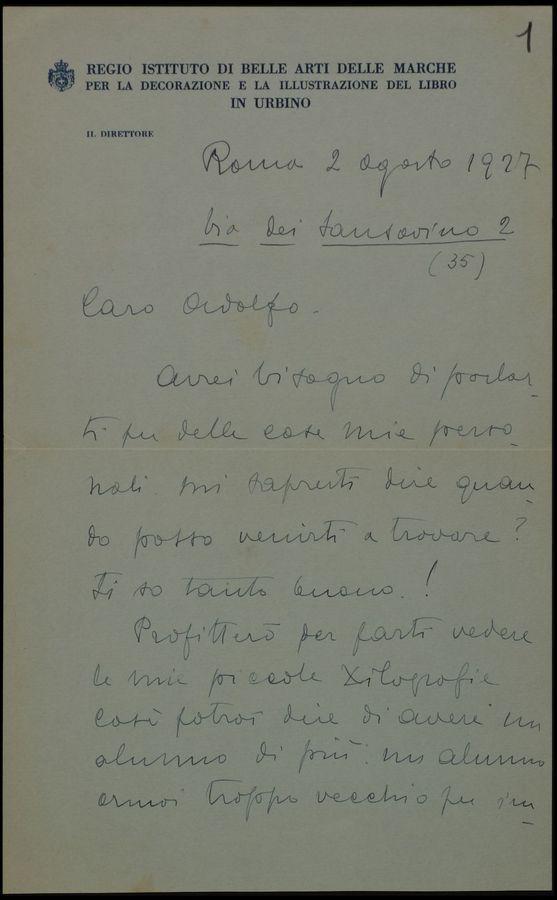 1
REGIO ISTITUTO DI BELLE ARTI DELLE MARCHE
PER LA DECORAZIONE E LA ILLUSTRAZIONE DEL LIBRO
IN URBINO
IL DIRETTORE
Roma 2 agosto 1927
Via dei Sansovino 2
(35)
Caro Adolfo.
Avrei bisogno di parlar-
ti per delle cose mie perso-
nali. mi sapresti dire quan-
do posso venirti a trovare?
Ti so tanto buono.!
Profitterò per farti vedere
le mie piccole Xilografie
così potrai dire di avere un
alunno di più: un alunno
ormai troppo vecchio per im-